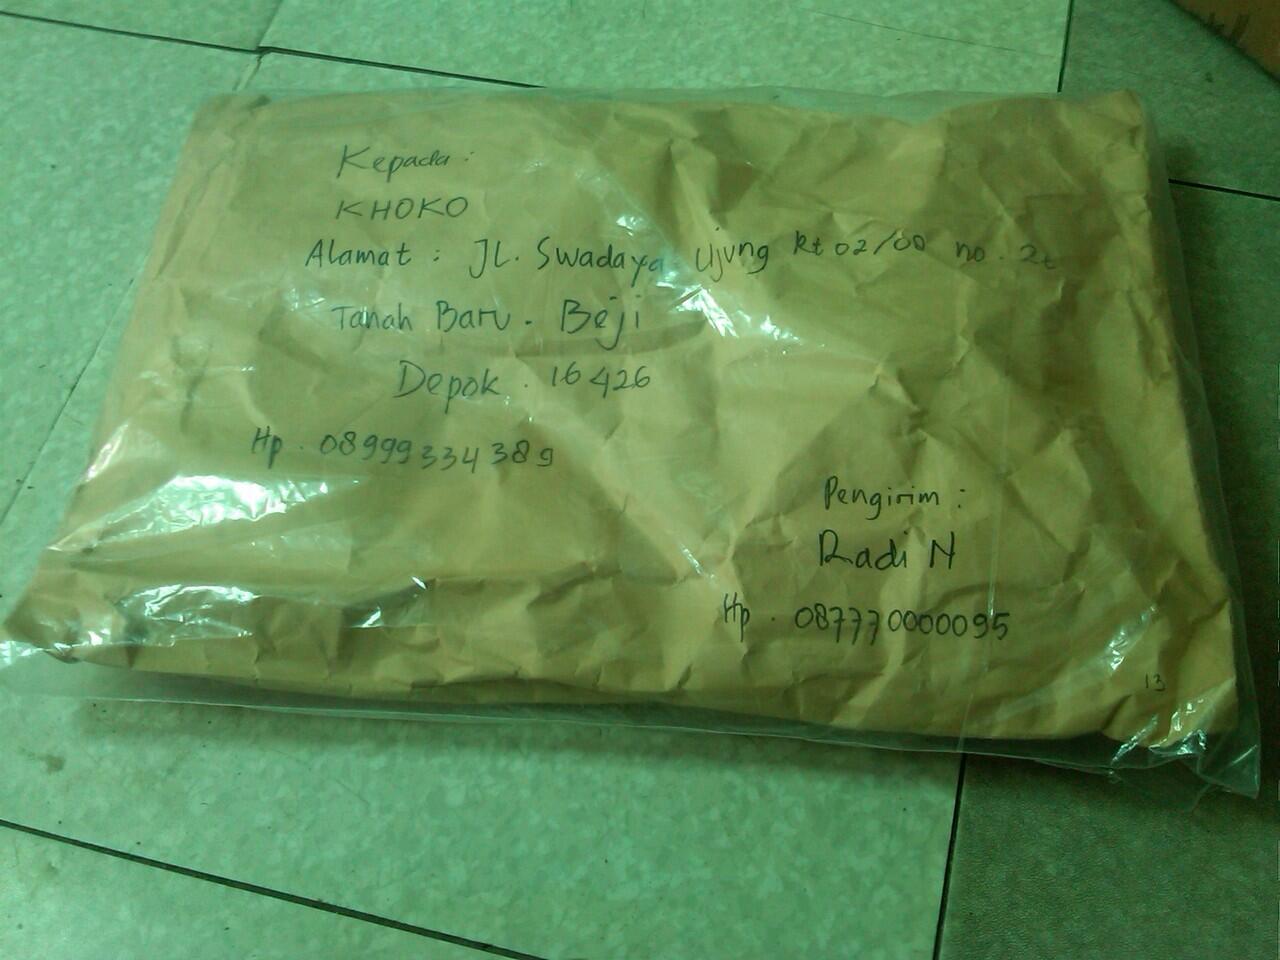 Kepada :
KHOKO
Alamat : JL. Swadaya Ujung Rt 02/00 no.
Tanah Baru. Beji
Depok. 16426
Hp. 08999334389
Pengirim :
Radi N
Hp. 087770000095
13